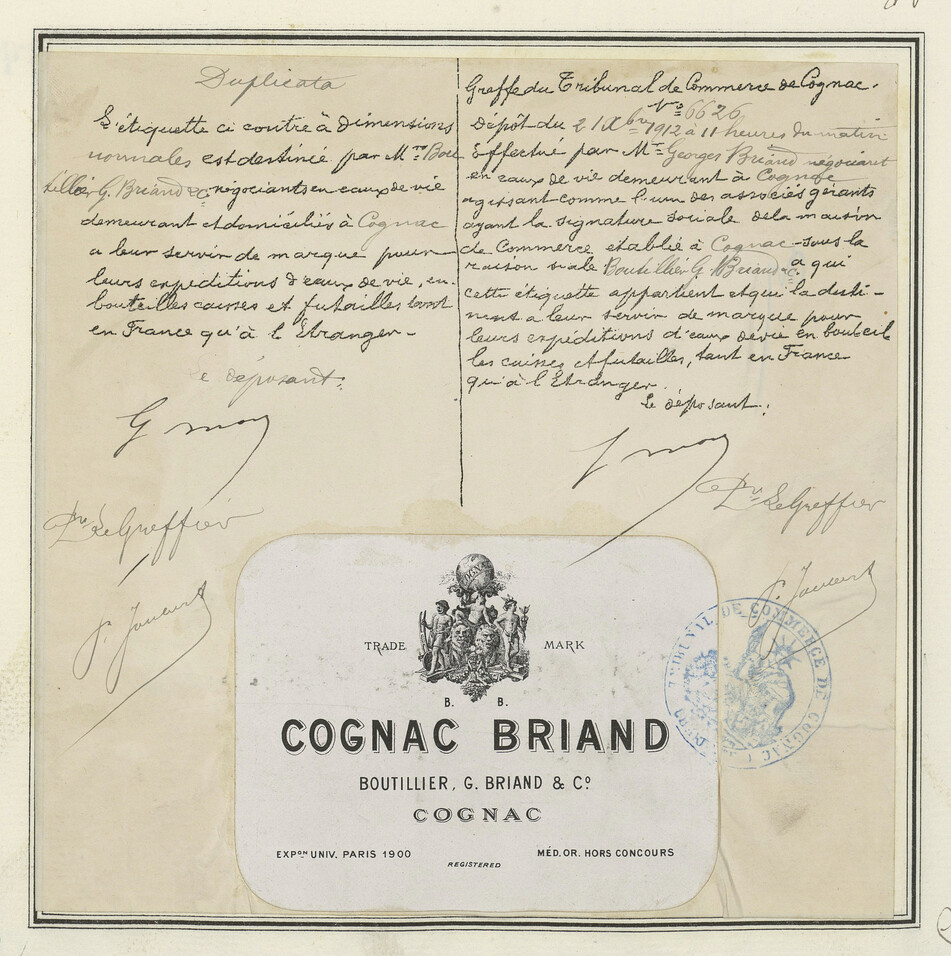 Duplicata
L'étiquette ci contre à dimensions
normales est destinée par Mrs Bou
tillier G. Briand & C° négociants en eaux de vie
demeurant et domiciliés à Cognac
a leur servir de marque pour
leurs expéditions d'eaux de vie, en
bouteilles caisses et futailles tant
en France qu'à l'Etranger -
Le déposant:
Pr Le Greffier
Greffe du Tribunal de Commerce de Cognac.
N° 6626
Dépôt du 21 Xbre 1912 à 11 heures du matin
Effectué par Mr Georges Briand négociant
en eaux de vie demeurant à Cognac
agissant comme l'un des associés gérants
ayant la signature sociale de la maison
de Commerce etablie à Cognac - sous la
raison siale Boutillier G. Briand & C° a qui
cette étiquette appartient et qui la desti -
nent a leur servir de marque pour
leurs expéditions d'eaux de vie en bouteil
les caisses et futailles, tant en France
qu'à l'Etranger.
Le déposant:
Pr Le Greffier
TRADE MARK
B. B.
COGNAC BRIAND
BOUTILLIER, G. BRIAND & C°
COGNAC
EXPON UNIV. PARIS 1900
MÉD. OR. HORS CONCOURS
REGISTERED
TRIBUNAL DE COMMERCE DE COGNAC